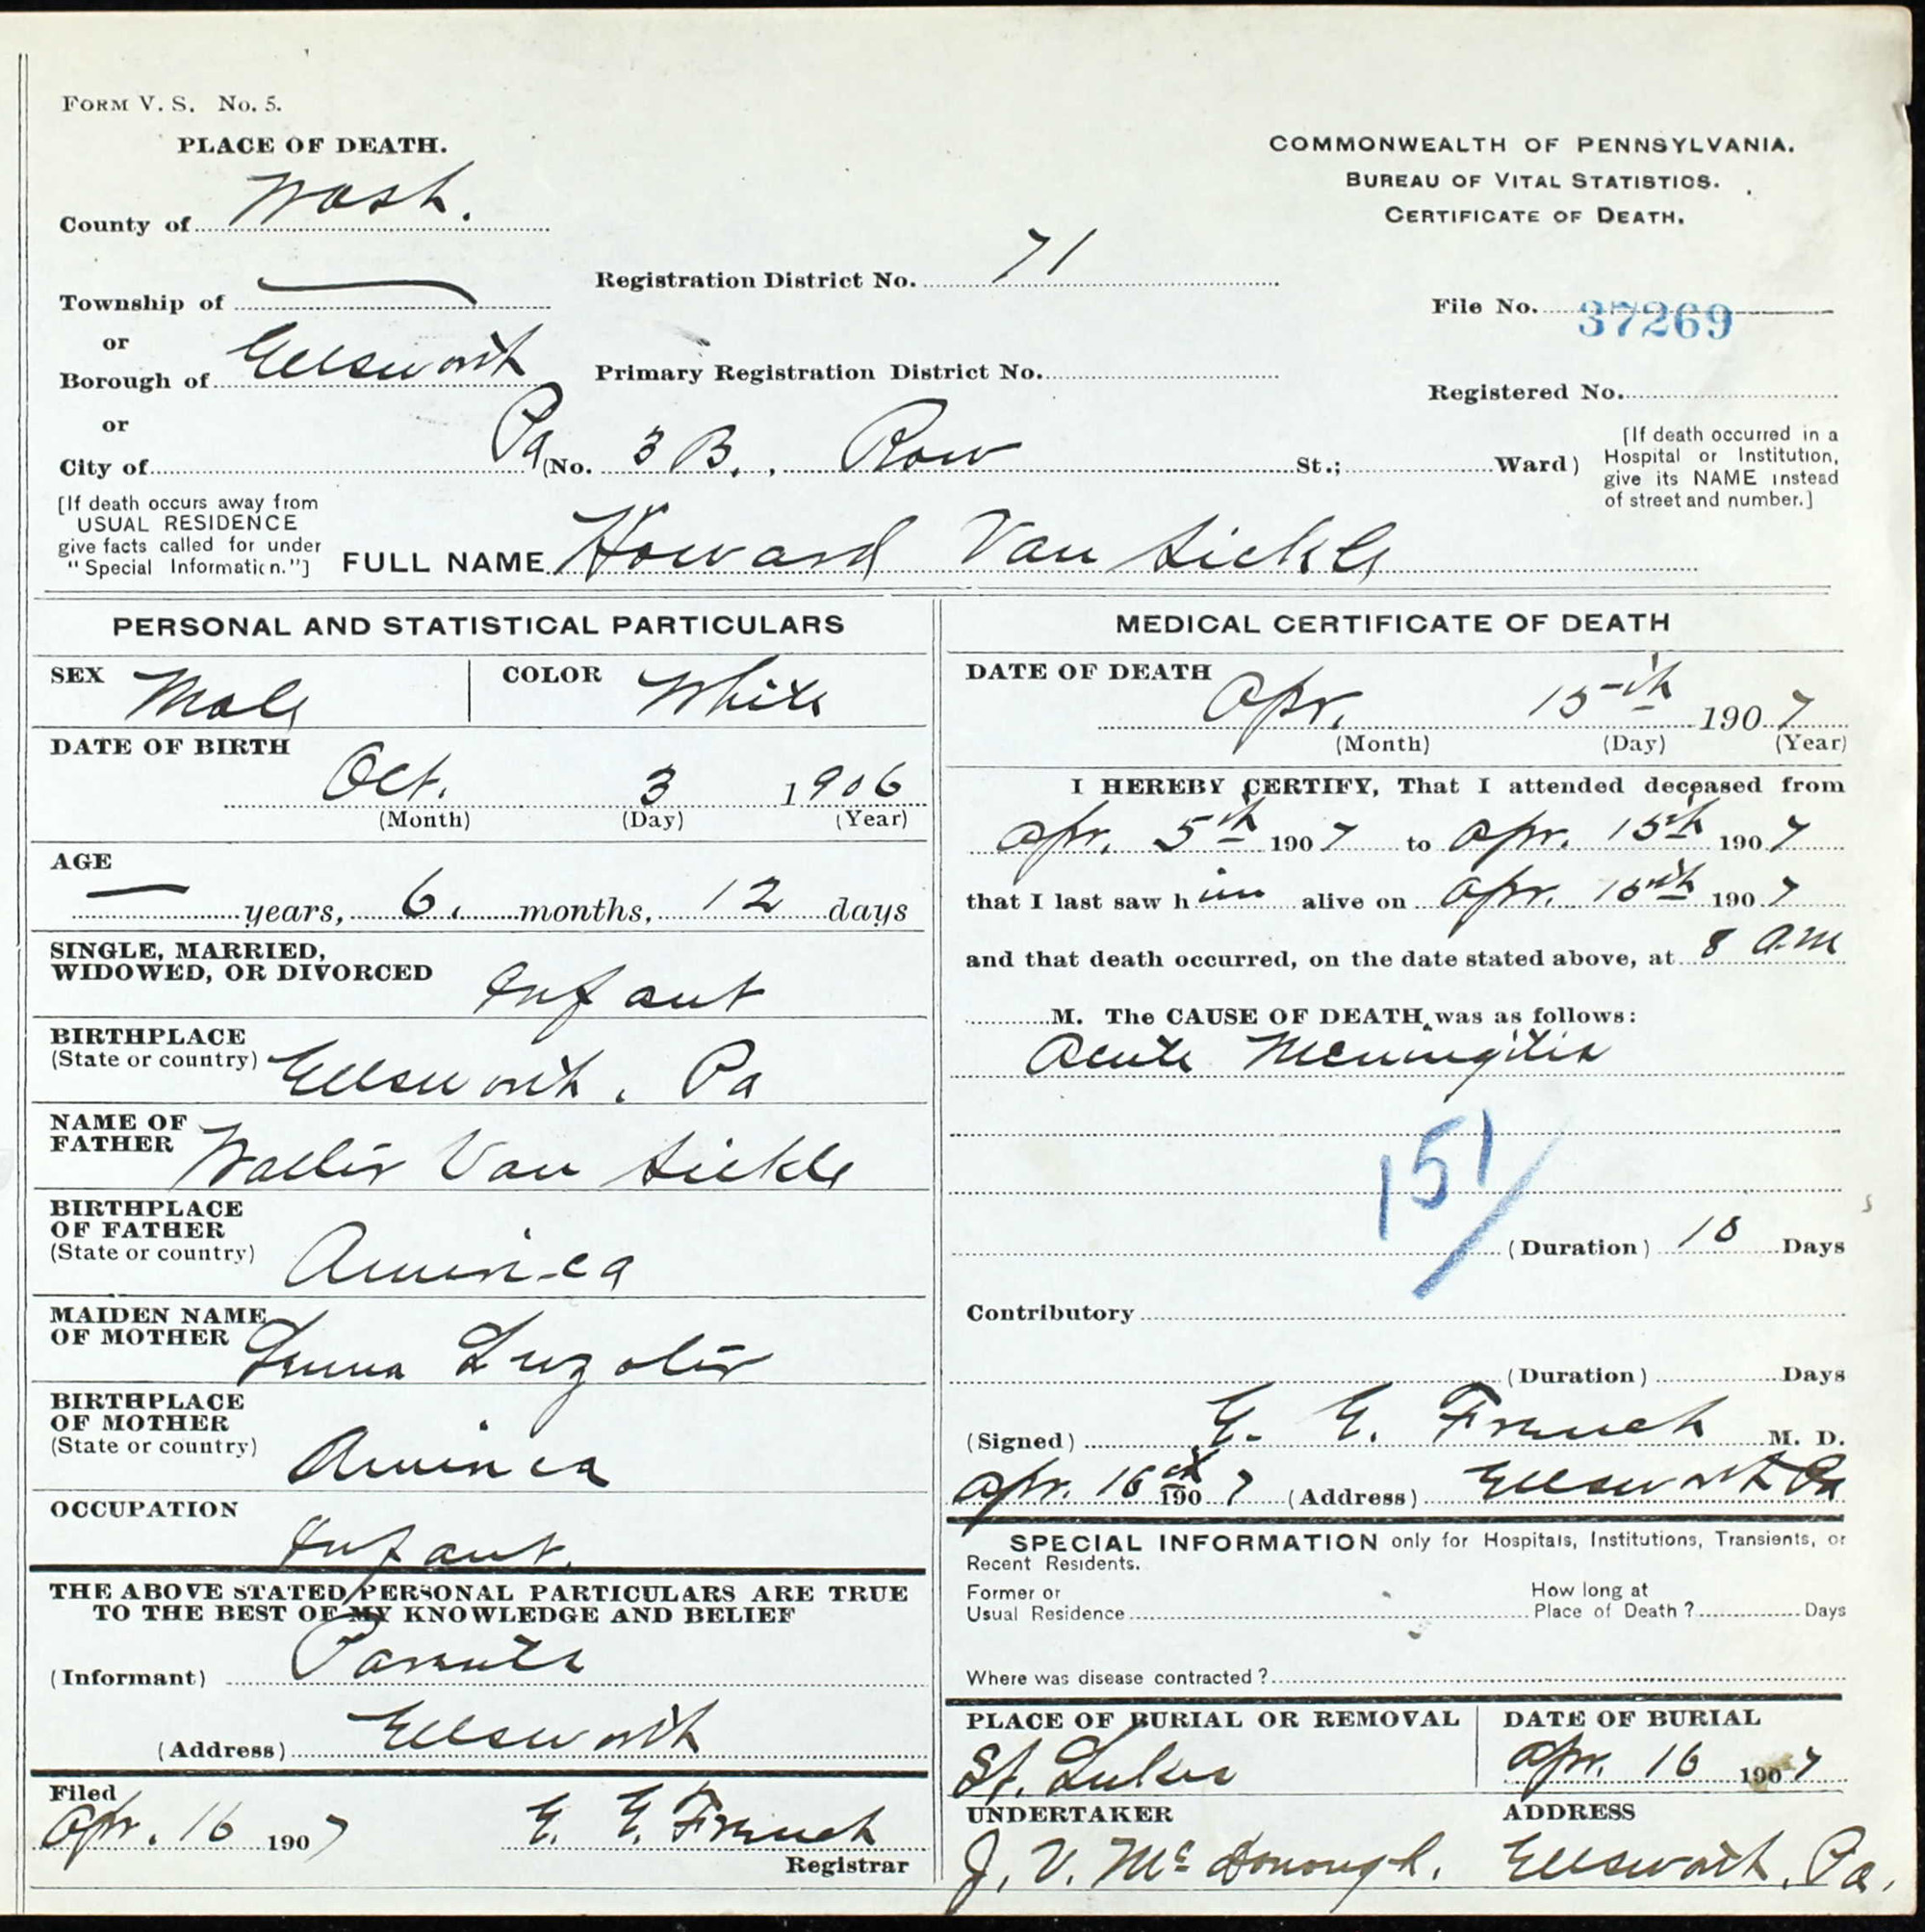 FORM V. S. No. 5.
PLACE OF DEATH.
County of Wash.
Township of —
or
Borough of Ellsworth
or
City of Pa (No. 3 B., Row St.; Ward)
[If death occurs away from
USUAL RESIDENCE
give facts called for under
"Special Information."]
COMMONWEALTH OF PENNSYLVANIA.
BUREAU OF VITAL STATISTICS.
CERTIFICATE OF DEATH.
Registration District No. 71
File No. 37269
Primary Registration District No.
Registered No.
[If death occurred in a
Hospital or Institution,
give its NAME instead
of street and number.]
FULL NAME Howard Van Sickle
PERSONAL AND STATISTICAL PARTICULARS
SEX Male COLOR White
DATE OF BIRTH
Oct. 3 1906
(Month) (Day) (Year)
AGE
— years, 6. months, 12 days
SINGLE, MARRIED,
WIDOWED, OR DIVORCED Infant
BIRTHPLACE
(State or country) Ellsworth. Pa
NAME OF
FATHER Walter Van Sickle
BIRTHPLACE
OF FATHER
(State or country) America
MAIDEN NAME
OF MOTHER
BIRTHPLACE
OF MOTHER
(State or country) America
OCCUPATION
Infant.
THE ABOVE STATED PERSONAL PARTICULARS ARE TRUE
TO THE BEST OF MY KNOWLEDGE AND BELIEF
(Informant) Parents
(Address) Ellsworth
Filed
Apr. 16 1907 E. E. French
Registrar
MEDICAL CERTIFICATE OF DEATH
DATE OF DEATH
Apr. 15th 1907
(Month) (Day) (Year)
I HEREBY CERTIFY, That I attended deceased from
Apr. 5th 1907 to Apr. 15th 1907
that I last saw him alive on Apr. 15th 1907
and that death occurred, on the date stated above, at 8 a.m
M. The CAUSE OF DEATH was as follows:
Acute Meningitis
151
(Duration) 10 Days
Contributory
(Duration) Days
(Signed) E. E. French M. D.
Apr. 16th 1907 (Address) Ellsworth Pa
SPECIAL INFORMATION only for Hospitals, Institutions, Transients, or
Recent Residents.
Former or
Usual Residence
How long at
Place of Death? Days
Where was disease contracted?
PLACE OF BURIAL OR REMOVAL
St. Lukes
DATE OF BURIAL
Apr. 16 1907
UNDERTAKER
J. V. McDonough.
ADDRESS
Ellsworth, Pa.